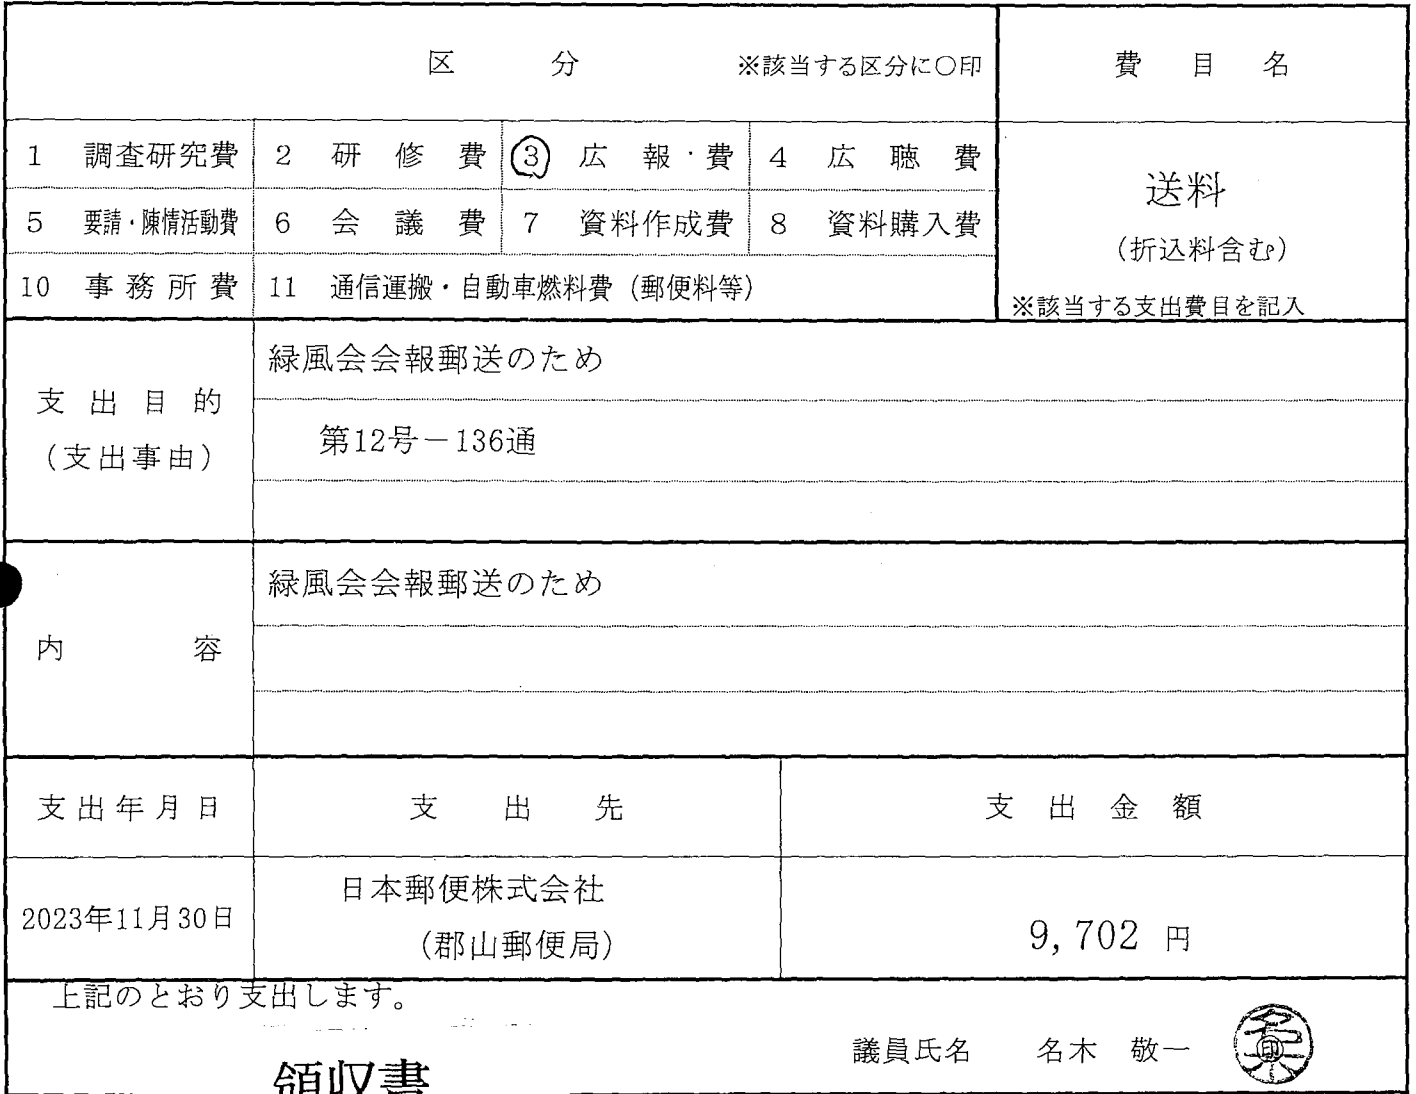 区分 ※該当する区分に○印 費目名
1 調査研究費 2 研修費 ③ 広報費 4 広聴費
5 要請・陳情活動費 6 会議費 7 資料作成費 8 資料購入費
10 事務所費 11 通信運搬・自動車燃料費（郵便料等）
送料
（折込料含む）
※該当する支出費目を記入
支出目的
（支出事由）
緑風会会報郵送のため
第12号－136通
内容
緑風会会報郵送のため
支出年月日 支出先 支出金額
2023年11月30日
日本郵便株式会社
（郡山郵便局）
9,702 円
上記のとおり支出します。
議員氏名 名木 敬一 印
領収書